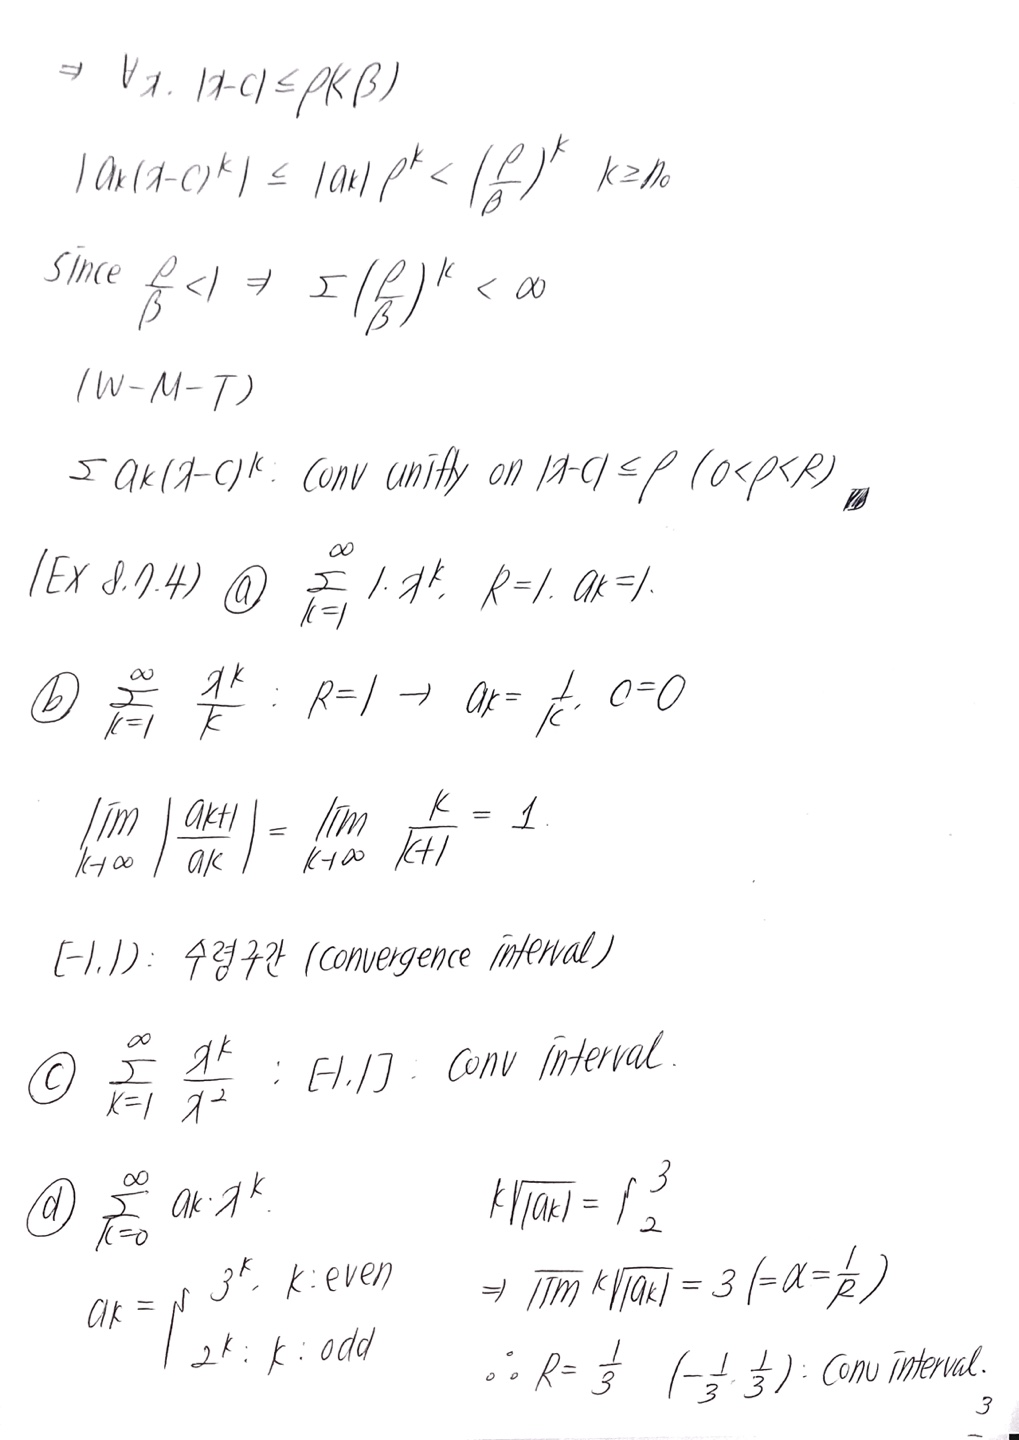 ⇒ ∀x. |x-c| ≤ ρ(<β)
|ak(x-c)^k| ≤ |ak| ρ^k < (ρ/β)^k k≥n₀
since ρ/β <1 ⇒ Σ(ρ/β)^k < ∞
(W-M-T)
Σ ak(x-c)^k: conv unifly on |x-c| ≤ ρ (0<ρ<R)
(Ex 8.7.4) ⓐ Σ_{k=1}^∞ 1·x^k. R=1. ak=1.
ⓑ Σ_{k=1}^∞ x^k/k : R=1 → ak= 1/k. c=0
lim_{k→∞} |ak+1/ak| = lim_{k→∞} k/k+1 = 1.
[-1.1): 수렴구간 (convergence interval)
ⓒ Σ_{k=1}^∞ x^k/x^2 : [-1.1] : conv interval.
ⓓ Σ_{k=0}^∞ ak·x^k.
ak = { 3^k. k:even
2^k: k: odd
k√|ak| = { 3
2
⇒ l̅i̅m̅ k√|ak| = 3 (=α=1/R)
∴ R= 1/3 (-1/3. 1/3): conv interval.
3